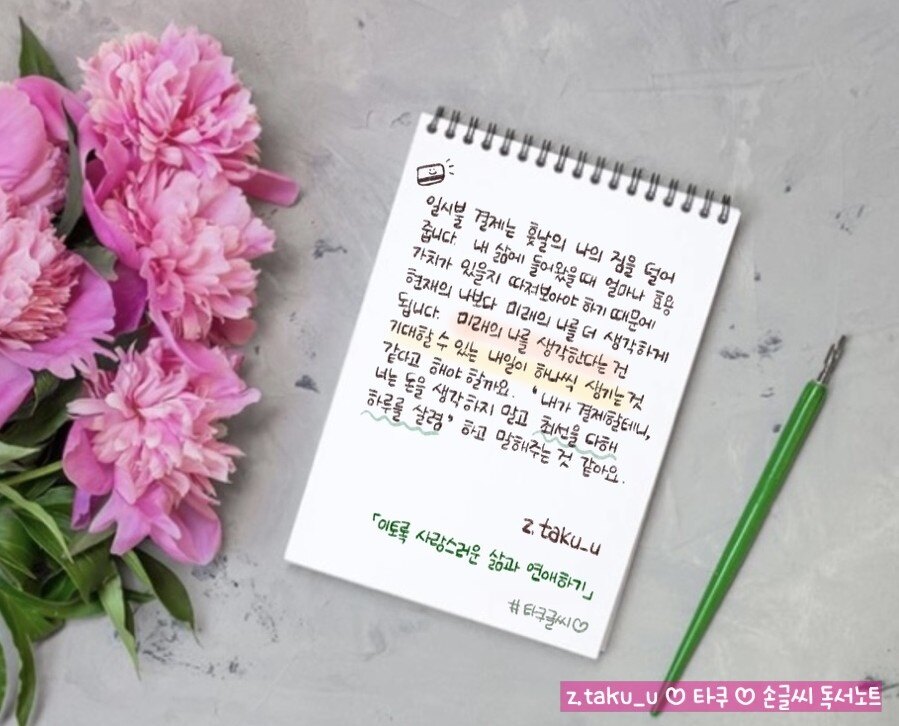 일시불 결제는 훗날의 나의 짐을 덜어
줍니다. 내 삶에 들어왔을때 얼마나 효용
가치가 있을지 따져보아야 하기 때문에
현재의 나보다 미래의 나를 더 생각하게
됩니다. 미래의 나를 생각한다는 건
기대할 수 있는 내일이 하나씩 생기는 것
같다고 해야 할까요. "내가 결제할테니,
너는 돈을 생각하지 말고 최선을 다해
하루를 살렴" 하고 말해주는 것 같아요.
z.taku_u
「이토록 사랑스러운 삶과 연애하기」
#타쿠글씨♡
z.taku_u ♡ 타쿠 ♡ 손글씨 독서노트